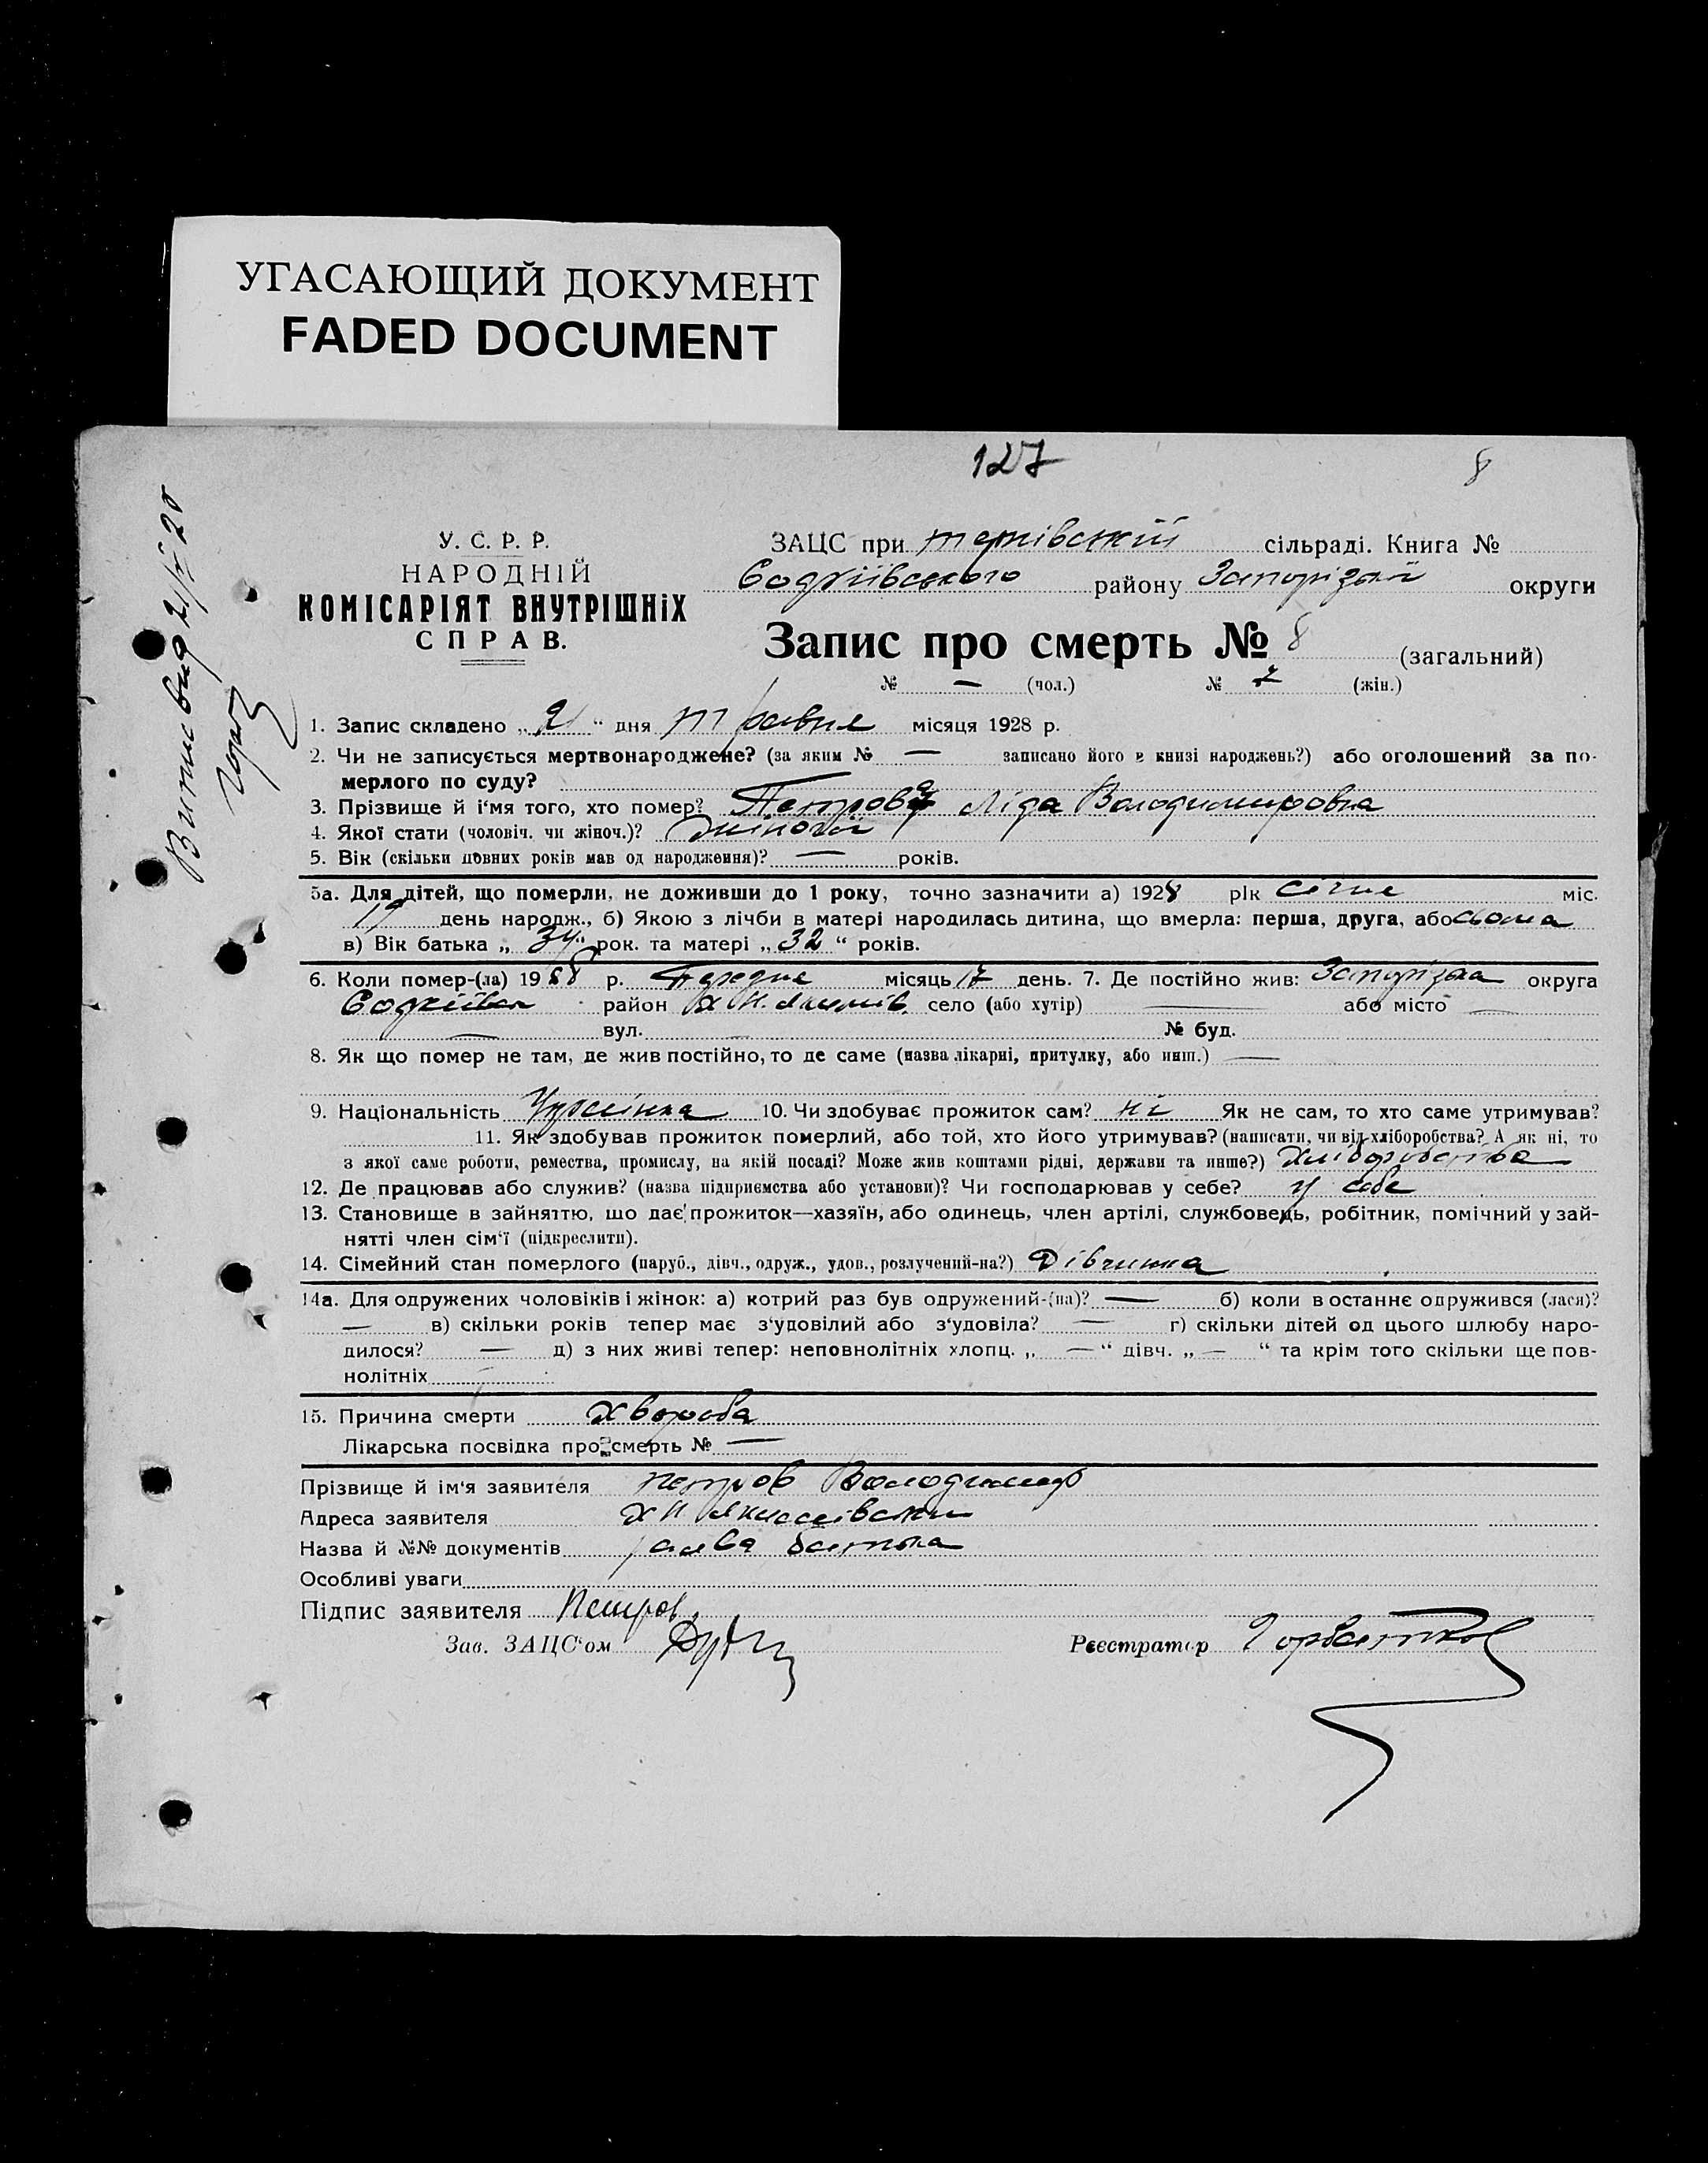 УГАСАЮЩИЙ ДОКУМЕНТ
FADED DOCUMENT
127
8
У. С. Р. Р.
НАРОДНІЙ
КОМІСАРІЯТ ВНУТРІШНіХ
СПРАВ.
ЗАЦС при сільраді. Книга №
району Запорізкої округи
Запис про смерть № 8 (загальний)
№ — (чол.) № 2 (жін.)
1. Запис складено „21“ дня Травня місяця 1928 р.
2. Чи не записується мертвонароджене? (за яким № — записано його в книзі народжень?) або оголошений за по-
мерлого по суду?
3. Прізвище й і‘мя того, хто помер? Петрова Ліда Володимировна
4. Якої стати (чоловіч. чи жіноч.)? жіночої
5. Вік (скільки повних років мав од народження)? — років.
5а. Для дітей, що померли, не доживши до 1 року, точно зазначити а) 1928 рік січня міс.
19 день народж., б) Якою з лічби в матері народилась дитина, що вмерла: перша, друга, або сьома
в) Вік батька „34“ рок. та матері „32“ років.
6. Коли помер-(ла) 1928 р. місяць 17 день. 7. Де постійно жив: Запорізька округа
район х Н. Якимів. село (або хутір) — або місто —
— вул. — № буд.
8. Як що помер не там, де жив постійно, то де саме (назва лікарні, притулку, або инш.) —
9. Національність 10. Чи здобуває прожиток сам? ні Як не сам, то хто саме утримував?
11. Як здобував прожиток померлий, або той, хто його утримував? (написати, чи від хліборобства? А як ні, то
з якої саме роботи, ремества, промислу, на якій посаді? Може жив коштами рідні, держави та инше?) Хліборобства
12. Де працював або служив? (назва підприємства або установи)? Чи господарював у себе? у себе
13. Становище в зайняттю, що дає прожиток—хазяїн, або одинець, член артілі, службовець, робітник, помічний у зай-
нятті член сім‘ї (підкреслити).
14. Сімейний стан померлого (паруб., дівч., одруж., удов., розлучений-на?) Дівчинка
14а. Для одружених чоловіків і жінок: а) котрий раз був одружений-(на)? — б) коли в останнє одружився (лася)?
— в) скільки років тепер має з‘удовілий або з‘удовіла? — г) скільки дітей од цього шлюбу наро-
дилося? — д) з них живі тепер: неповнолітніх хлопц. „—“ дівч. „—“ та крім того скільки ще пов-
нолітніх —
15. Причина смерти хвороба
Лікарська посвідка про смерть № —
Прізвище й ім‘я заявителя Петров Володимир
Адреса заявителя х Н Якимівськи
Назва й №№ документів заява батька
Особливі уваги
Підпис заявителя Петров
Зав. ЗАЦС‘ом
Реєстратор Горбатков